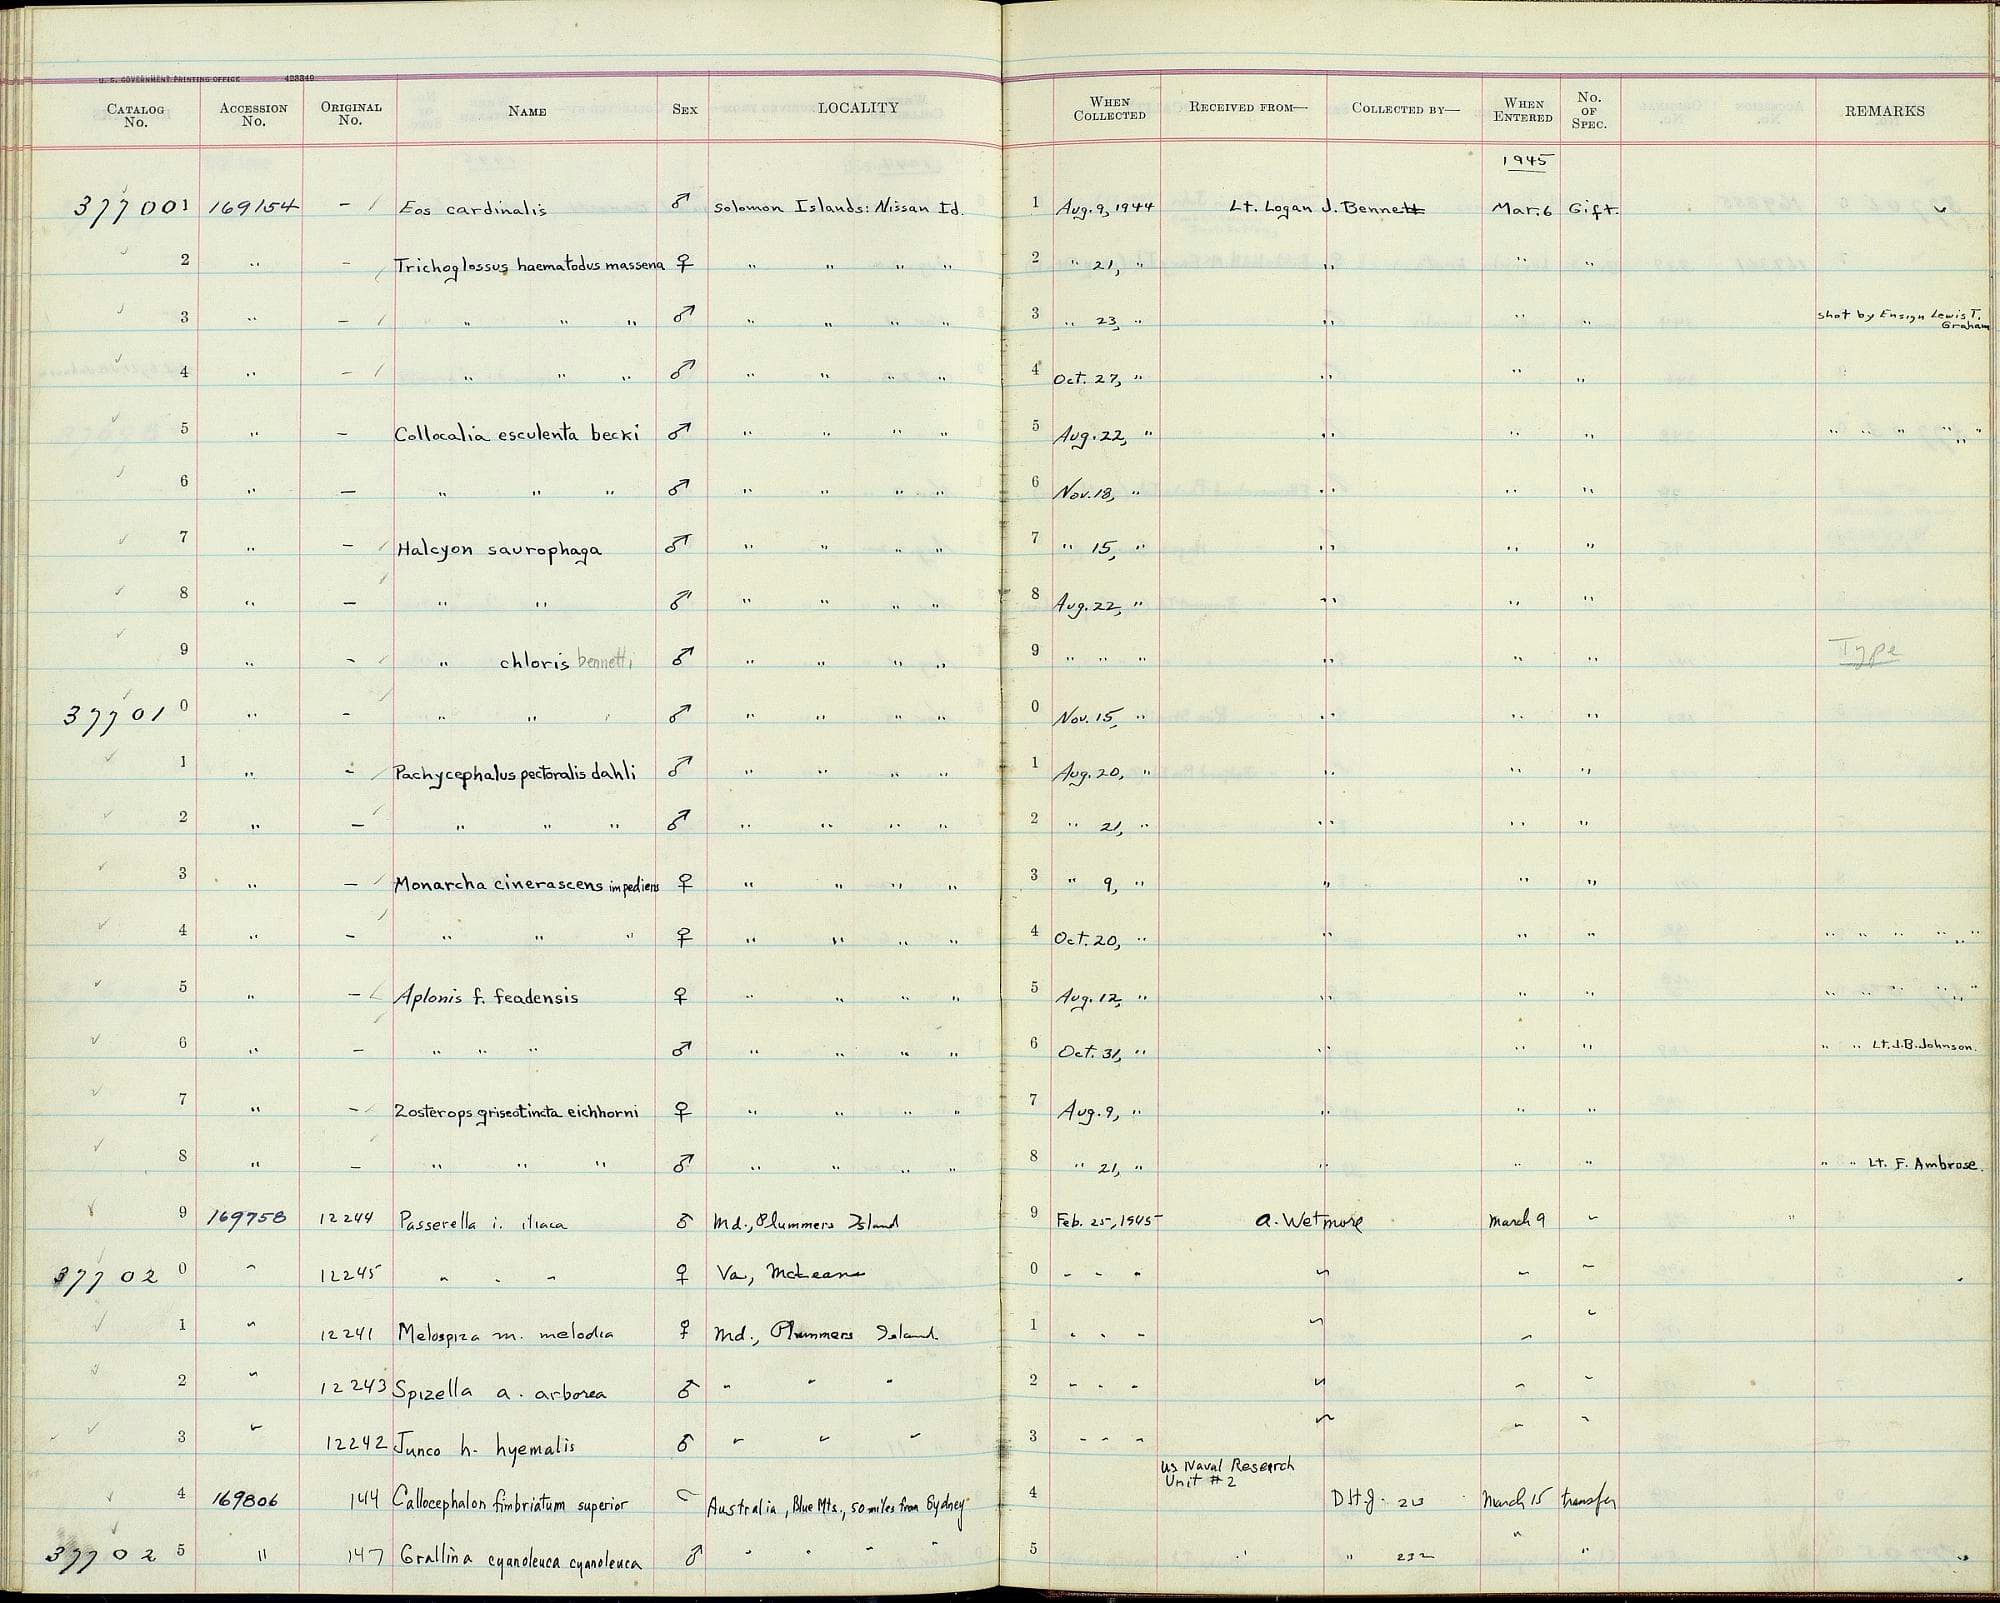 U. S. GOVERNMENT PRINTING OFFICE 423349
CATALOG No. ACCESSION No. ORIGINAL No. NAME SEX LOCALITY WHEN COLLECTED RECEIVED FROM— COLLECTED BY— WHEN ENTERED No. OF SPEC. REMARKS
1945
377001 169154 – Eos cardinalis ♂ Solomon Islands: Nissan Id. 1 Aug. 9, 1944 Lt. Logan J. Bennett Mar. 6 Gift.
2 " – Trichoglossus haematodus massena ♀ " " " " 2 " 21, " " " "
3 " – " " " ♂ " " " " 3 " 23, " " " " shot by Ensign Lewis T. Graham
4 " – " " " ♂ " " " " 4 Oct. 27, " " " "
5 " – Collocalia esculenta becki ♂ " " " " 5 Aug. 22, " " " " " " " " " "
6 " – " " " ♂ " " " " 6 Nov. 18, " " " "
7 " – Halcyon saurophaga ♂ " " " " 7 " 15, " " " "
8 " – " " ♂ " " " " 8 Aug. 22, " " " "
9 " – " chloris bennetti ♂ " " " " 9 " " " " " " Type
377010 " – " " ♂ " " " " 0 Nov. 15, " " " "
1 " – Pachycephalus pectoralis dahli ♂ " " " " 1 Aug. 20, " " " "
2 " – " " " ♂ " " " " 2 " 21, " " " "
3 " – Monarcha cinerascens impediens ♀ " " " " 3 " 9, " " " "
4 " – " " " ♀ " " " " 4 Oct. 20, " " " " " " " " " "
5 " – Aplonis f. feadensis ♀ " " " " 5 Aug. 12, " " " " " " " " " "
6 " – " " " ♂ " " " " 6 Oct. 31, " " " " " " Lt. J. B. Johnson.
7 " – Zosterops griseotincta eichhorni ♀ " " " " 7 Aug. 9, " " " "
8 " – " " " ♂ " " " " 8 " 21, " " " " " " Lt. F. Ambrose.
9 169758 12244 Passerella i. iliaca ♂ Md., Plummers Island 9 Feb. 25, 1945 A. Wetmore March 9 "
377020 " 12245 " " " ♀ Va., McLean 0 " " " " " "
1 " 12241 Melospiza m. melodia ♀ Md., Plummers Island. 1 " " " " " "
2 " 12243 Spizella a. arborea ♂ " " " 2 " " " " " "
3 " 12242 Junco h. hyemalis ♂ " " " 3 " " " " " "
US Naval Research
Unit # 2
4 169806 144 Callocephalon fimbriatum superior Australia, Blue Mts., 50 miles from Sydney 4 D H J. March 15 transfer
377025 " 147 Grallina cyanoleuca cyanoleuca ♂ " " " " 5 " " 232 " "